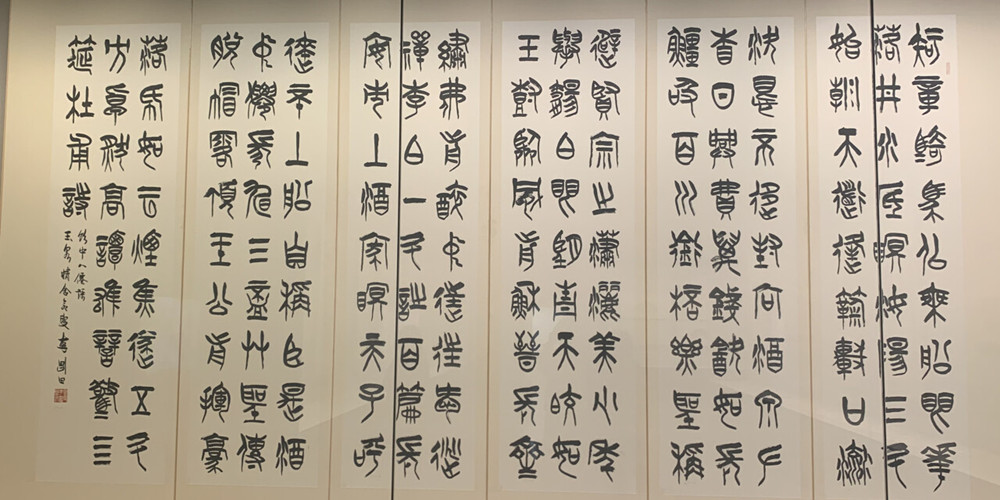 知章騎馬似乘船眼花
落井水底眠汝陽三斗
始朝天道逢麴車口流
涎恨不移封向酒泉左
相日興費萬錢飲如長
鯨吸百川銜杯樂聖稱
避賢宗之瀟灑美少年
舉觴白眼望青天皎如
玉樹臨風前蘇晉長齋
繡佛前醉中往往愛逃
禪李白一斗詩百篇長
安市上酒家眠天子呼
來不上船自稱臣是酒
中僊張旭三杯草聖傳
脫帽露頂王公前揮毫
落紙如雲煙焦遂五斗
方卓然高談雄辯驚四
筵杜甫詩
飲中八僊歌